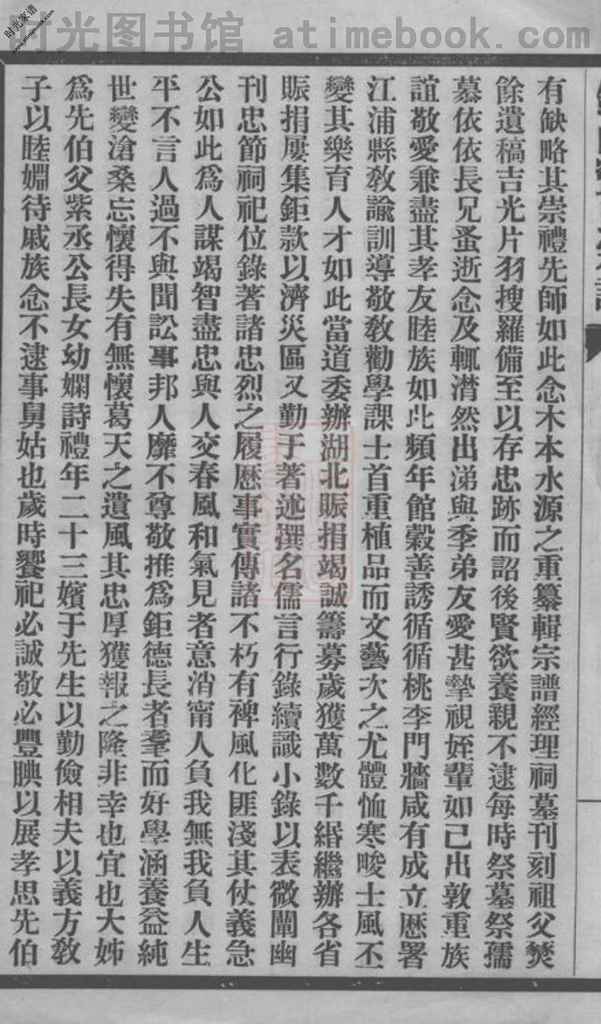 时光图书馆 atimebook.com
时光家谱
www.atimebook.com
有缺略其崇禮先師如此念木本水源之重纂輯宗譜經理祠墓刊刻祖父焚
餘遺稿吉光片羽搜羅備至以存忠跡而詔後賢欲養親不逮每時祭墓祭孺
慕依依長兄蚤逝念及輒潸然出涕與季弟友愛甚摯視姪輩如己出敦重族
誼敬愛兼盡其孝友睦族如此頻年館穀善誘循循桃李門牆咸有成立歷署
江浦縣教諭訓導敬教勸學課士首重植品而文藝次之尤體恤寒畯士風丕
變其樂育人才如此當道委辦湖北賑捐竭誠籌募歲獲萬數千緡繼辦各省
賑捐屢集鉅款以濟災區又勤于著述撰名儒言行錄續識小錄以表微闡幽
刊忠節祠祀位錄著諸忠烈之履歷事實傳諸不朽有裨風化匪淺其仗義急
公如此為人謀竭智盡忠與人交春風和氣見者意消甯人負我無我負人生
平不言人過不與聞訟事邦人靡不尊敬推為鉅德長者耄而好學涵養益純
世變滄桑忘懷得失有無懷葛天之遺風其忠厚獲報之隆非幸也宜也大姊
為先伯父紫丞公長女幼嫻詩禮年二十三嬪于先生以勤儉相夫以義方教
子以睦婣待戚族念不逮事舅姑也歲時饗祀必誠敬必豐腆以展孝思先伯